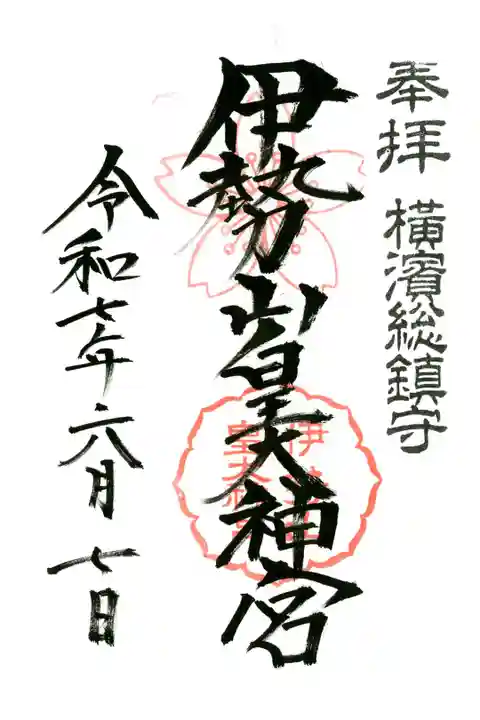 奉拝 横濱総鎮守
伊勢山皇大神宮
伊勢山
皇大神宮
令和七年六月七日